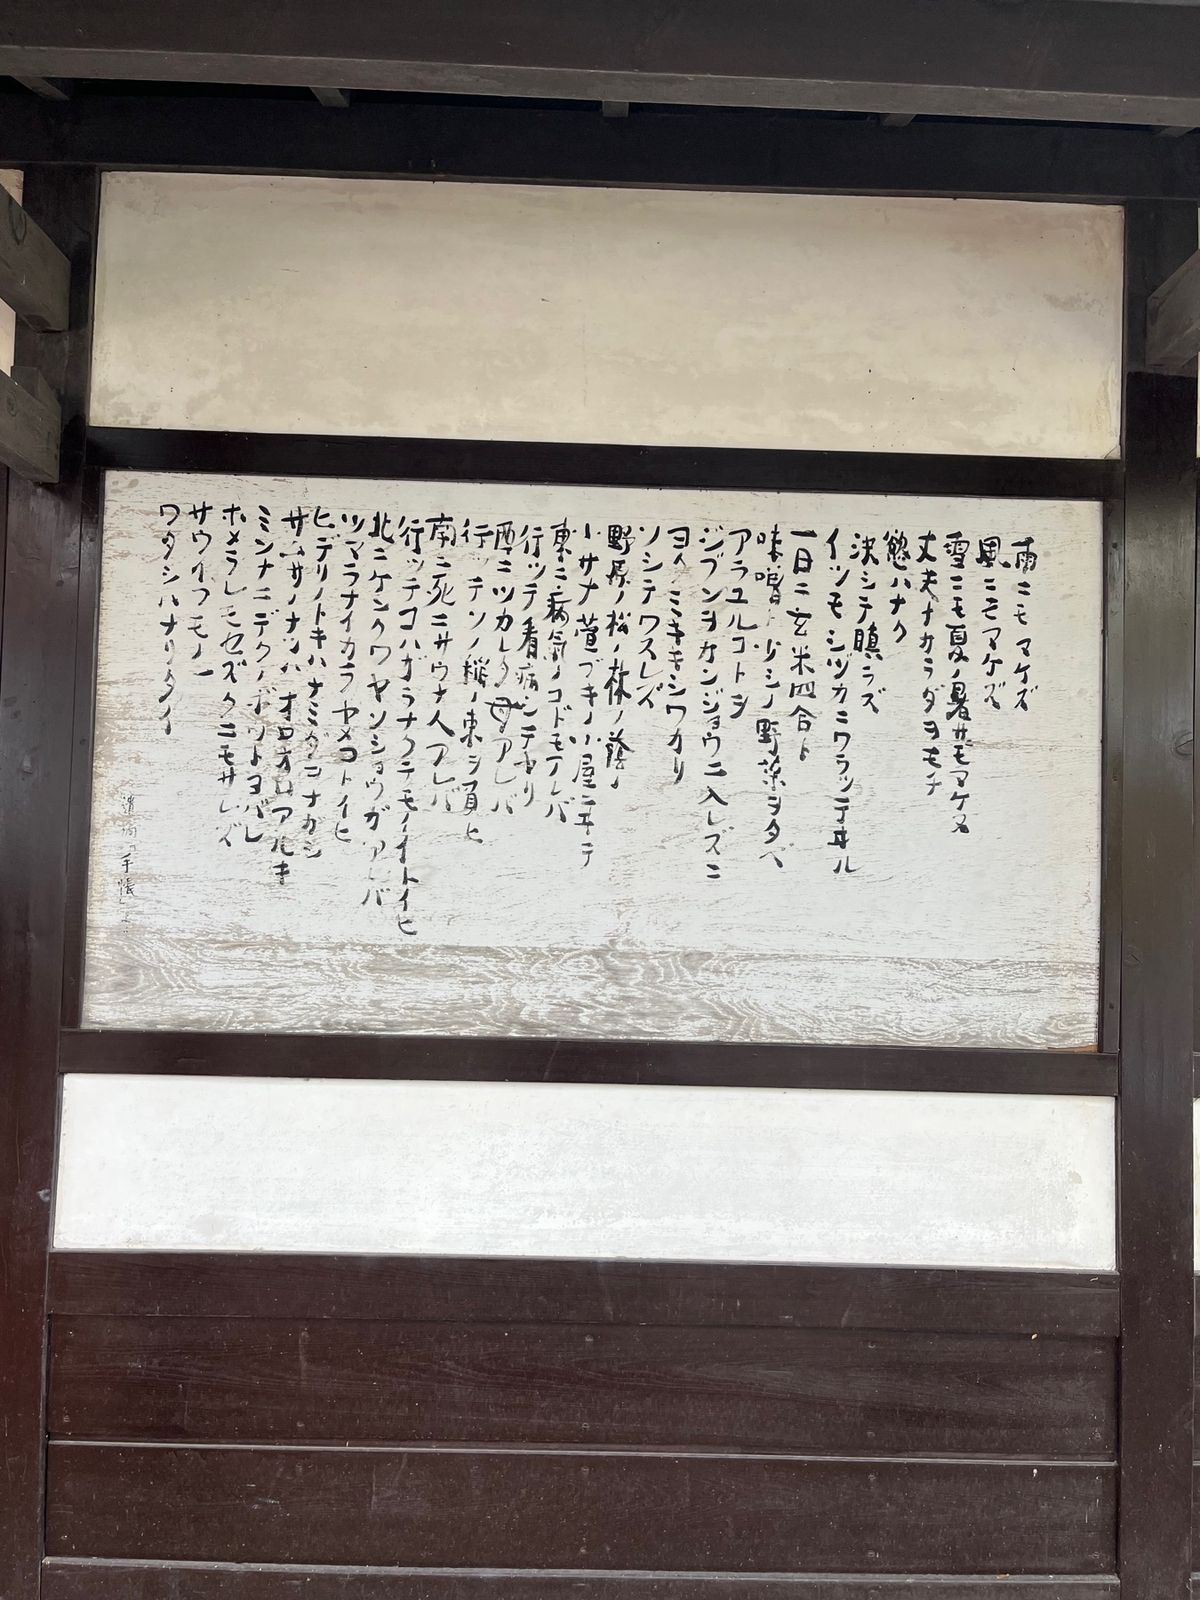 雨ニモマケズ
風ニモマケズ
雪ニモ夏ノ暑サニモマケヌ
丈夫ナカラダヲモチ
慾ハナク
決シテ瞋ラズ
イツモシヅカニワラッテヰル
一日ニ玄米四合ト
味噌ト少シノ野菜ヲタベ
アラユルコトヲ
ジブンヲカンジョウニ入レズニ
ヨクミキキシワカリ
ソシテワスレズ
野原ノ松ノ林ノ蔭ノ
小サナ萓ブキノ小屋ニヰテ
東ニ病気ノコドモアレバ
行ッテ看病シテヤリ
西ニツカレタ母アレバ
行ッテソノ稲ノ束ヲ負ヒ
南ニ死ニサウナ人アレバ
行ッテコハガラナクテモイイトイヒ
北ニケンクヮヤソショウガアレバ
ツマラナイカラヤメロトイヒ
ヒデリノトキハナミダヲナガシ
サムサノナツハオロオロアルキ
ミンナニデクノボウトヨバレ
ホメラレモセズクニモサレズ
サウイフモノニ
ワタシハナリタイ
「手帳」より